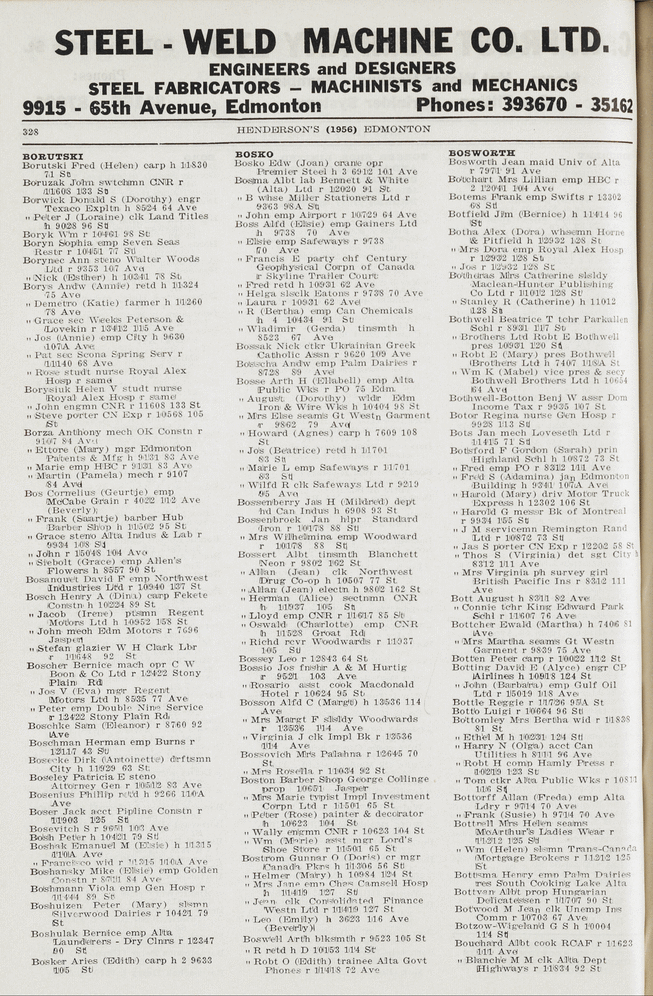 STEEL - WELD MACHINE CO. LTD.
ENGINEERS and DESIGNERS
STEEL FABRICATORS — MACHINISTS and MECHANICS
9915 - 65th Avenue, Edmonton Phones: 393670 - 35162
328 HENDERSON'S (1956) EDMONTON
BORUTSKI
Borutski Fred (Helen) carp h 11830
71 St
Boruzak John swtchmn CNR r
11608 133 St
Borwick Donald S (Dorothy) engr
Texaco Expltn h 8524 64 Ave
" Peter J (Loraine) clk Land Titles
h 9028 96 St
Boryk Wm r 10461 98 St
Boryn Sophia emp Seven Seas
Restr r 10451 77 St
Borynec Ann steno Walter Woods
Ltd r 9353 107 Ave
" Nick (Esther) h 10341 78 St
Borys Andw (Annie) retd h 11324
75 Ave
" Demetro (Katie) farmer h 11260
78 Ave
" Grace sec Weeks Peterson &
Lovekin r 13412 115 Ave
" Jos (Annie) emp City h 9630
107A Ave
" Pat sec Scona Spring Serv r
11140 68 Ave
" Rose studt nurse Royal Alex
Hosp r same
Borysiuk Helen V studt nurse
Royal Alex Hosp r same
" John engmn CNR r 11608 133 St
" Steve porter CN Exp r 10568 105
St
Borza Anthony mech OK Constn r
9107 84 Ave
" Ettore (Mary) mgr Edmonton
Patents & Mfg h 9131 83 Ave
" Marie emp HBC r 9131 83 Ave
" Martin (Pamela) mech r 9107
84 Ave
Bos Cornelius (Geurtje) emp
McCabe Grain r 4022 112 Ave
(Beverly)
" Frank (Saartje) barber Hub
Barber Shop h 11502 95 St
" Grace steno Alta Indus & Lab r
9934 108 St
" John r 15048 104 Ave
" Siebolt (Grace) emp Allen's
Flowers h 8557 90 St
Bosanquet David F emp Northwest
Industries Ltd r 10940 137 St
Bosch Henry A (Dina) carp Fekete
Constn h 10224 89 St
" Jacob (Irene) ptsmn Regent
Motors Ltd h 10952 158 St
" John mech Edm Motors r 7696
Jasper
" Stefan glazier W H Clark Lbr
r 11648 92 St
Boscher Bernice mach opr C W
Boon & Co Ltd r 12422 Stony
Plain Rd
" Jos V (Eva) mgr Regent
Motors Ltd h 8535 77 Ave
" Peter emp Double Nine Service
r 12422 Stony Plain Rd
Boschke Sam (Eleanor) r 8760 92
Ave
Boschman Herman emp Burns r
12117 43 St
Bosecke Dirk (Antoinette) drftsmn
City h 11929 63 St
Boseley Patricia E steno
Attorney Gen r 10512 83 Ave
Bosenius Phillip retd h 9266 110A
Ave
Boser Jack acct Pipline Constn r
11903 125 St
Bosevitch S r 9651 103 Ave
Bosh Peter h 10421 79 St
Boshak Emanuel M (Elsie) h 11315
110A Ave
" Francisco wid r 11315 110A Ave
Boshansky Mike (Elsie) emp Golden
Constn r 8721 84 Ave
Boshmann Viola emp Gen Hosp r
11444 89 St
Boshuizen Peter (Mary) slsmn
Silverwood Dairies r 10421 79
St
Boshulak Bernice emp Alta
Launderers - Dry Clnrs r 12347
90 St
Bosker Aries (Edith) carp h 2 9633
105 St
BOSKO
Bosko Edw (Joan) crane opr
Premier Steel h 3 6912 101 Ave
Bosma Albt lab Bennett & White
(Alta) Ltd r 12020 91 St
" B whse Miller Stationers Ltd r
9363 98A St
" John emp Airport r 10729 64 Ave
Boss Alfd (Elsie) emp Gainers Ltd
h 9738 70 Ave
" Elsie emp Safeways r 9738
70 Ave
" Francis E party chf Century
Geophysical Corpn of Canada
r Skyline Trailer Court
" Fred retd h 10931 62 Ave
" Helga slsclk Eatons r 9738 70 Ave
" Laura r 10931 62 Ave
" R (Bertha) emp Can Chemicals
h 4 10434 91 St
" Wladimir (Gerda) tinsmth h
8523 67 Ave
Bossak Nick ctkr Ukrainian Greek
Catholic Assn r 9620 109 Ave
Bosscha Andw emp Palm Dairies r
8728 89 Ave
Bosse Arth H (Ellabell) emp Alta
Public Wks r PO 75 Edm
" August (Dorothy) wldr Edm
Iron & Wire Wks h 10404 98 St
" Mrs Else seams Gt Westn Garment
r 9862 79 Ave
" Howard (Agnes) carp h 7609 108
St
" Jos (Beatrice) retd h 11701
83 St
" Marie L emp Safeways r 11701
83 St
" Wilfd R clk Safeways Ltd r 9219
95 Ave
Bossenberry Jas H (Mildred) dept
hd Can Indus h 6908 93 St
Bossenbroek Jan hlpr Standard
Iron r 10178 88 St
" Mrs Wilhelmina emp Woodward
r 10178 88 St
Bossert Albt tinsmth Blanchett
Neon r 9802 162 St
" Allan (Jean) clk Northwest
Drug Co-op h 10507 77 St
" Allan (Jean) electn h 9802 162 St
" Herman (Alice) sectnmn CNR
h 11937 105 St
" Lloyd emp CNR r 11617 85 St
" Oswald (Charlotte) emp CNR
h 11528 Groat Rd
" Richd rcvr Woodwards r 11937
105 St
Bossey Leo r 12843 64 St
Bossio Jos frnshr A & M Hurtig
r 9521 103 Ave
" Rosario asst cook Macdonald
Hotel r 10624 95 St
Bosson Alfd C (Margt) h 13536 114
Ave
" Mrs Margt F slsldy Woodwards
r 13536 114 Ave
" Virginia J clk Impl Bk r 13536
114 Ave
Bossovich Mrs Palahna r 12645 70
St
" Mrs Rosella r 11034 92 St
Boston Barber Shop George Collinge
prop 10651 Jasper
" Mrs Marie typist Impl Investment
Corpn Ltd r 11501 65 St
" Peter (Rose) painter & decorator
h 10623 104 St
" Wally engmn CNR r 10623 104 St
" Wm (Marie) asst mgr Lord's
Shoe Store r 11501 65 St
Bostrom Gunner O (Doris) cr mgr
Canada Pkrs h 11306 56 St
" Helmer (Mary) h 10984 124 St
" Mrs Jane emp Chas Camsell Hosp
h 11419 127 St
" Jean clk Consolidated Finance
Westn Ltd r 11419 127 St
" Leo (Emily) h 3623 116 Ave
(Beverly)
Boswell Arth blksmth r 9523 105 St
" R retd h D 10153 114 St
" Robt O (Edith) trainee Alta Govt
Phones r 11418 72 Ave
BOSWORTH
Bosworth Jean maid Univ of Alta
r 7971 91 Ave
Botchart Mrs Lillian emp HBC r
2 12041 104 Ave
Botems Frank emp Swifts r 13302
68 St
Botfield Jim (Bernice) h 11414 96
St
Botha Alex (Dora) whsemn Horne
& Pitfield h 12932 128 St
" Mrs Dora emp Royal Alex Hosp
r 12932 128 St
" Jos r 12932 128 St
Botheras Mrs Catherine slsldy
Maclean-Hunter Publishing
Co Ltd r 11012 128 St
" Stanley R (Catherine) h 11012
128 St
Bothwell Beatrice T tchr Parkallen
Schl r 8931 117 St
" Brothers Ltd Robt E Bothwell
pres 10931 120 St
" Robt E (Mary) pres Bothwell
Brothers Ltd h 7407 118A St
" Wm K (Mabel) vice pres & secy
Bothwell Brothers Ltd h 10654
84 Ave
Bothwell-Botton Benj W assr Dom
Income Tax r 9935 107 St
Botor Regina nurse Gen Hosp r
9928 113 St
Bots Jan mech Loveseth Ltd r
11415 71 St
Botsford F Gordon (Sarah) prin
Highland Schl h 10872 73 St
" Fred emp PO r 8312 111 Ave
" Fred S (Adamina) jan Edmonton
Building h 9341 107A Ave
" Harold (Mary) driv Motor Truck
Express h 12302 106 St
" Harold G messr Bk of Montreal
r 9934 155 St
" J M servicemn Remington Rand
Ltd r 10872 73 St
" Jas S porter CN Exp r 12202 58 St
" Thos S (Virginia) det sgt City h
8312 111 Ave
" Mrs Virginia ph survey girl
British Pacific Ins r 8312 111
Ave
Bott August h 8311 82 Ave
" Connie tchr King Edward Park
Schl r 11607 76 Ave
Bottcher Ewald (Martha) h 7406 81
Ave
" Mrs Martha seams Gt Westn
Garment r 9839 75 Ave
Botten Peter carp r 10022 112 St
Botting David E (Alyce) engr CP
Airlines h 10918 124 St
" John (Barbara) emp Gulf Oil
Ltd r 15019 118 Ave
Bottle Reggie r 11726 95A St
Botto Luigi r 10664 96 St
Bottomley Mrs Bertha wid r 11838
81 St
" Ethel M h 10231 124 St
" Harry N (Olga) acct Can
Utilities h 8111 96 Ave
" Robt H comp Hamly Press r
10219 123 St
" Tom ctkr Alta Public Wks r 10811
116 St
Bottorff Allan (Freda) emp Alta
Ldry r 9714 70 Ave
" Frank (Susie) h 9714 70 Ave
Bottrell Mrs Helen seams
McArthur's Ladies Wear r
11212 125 St
" Wm (Helen) slsmn Trans-Canada
Mortgage Brokers r 11212 125
St
Bottsma Henry emp Palm Dairies
res South Cooking Lake Alta
Bottyan Albt prop Hungarian
Delicatessen r 11707 90 St
Botwood M Jean clk Unemp Ins
Comm r 10703 67 Ave
Botzow-Wigeland G S h 10004
114 St
Bouchard Albt cook RCAF r 11623
111 Ave
" Blanche M M clk Alta Dept
Highways r 11834 92 St